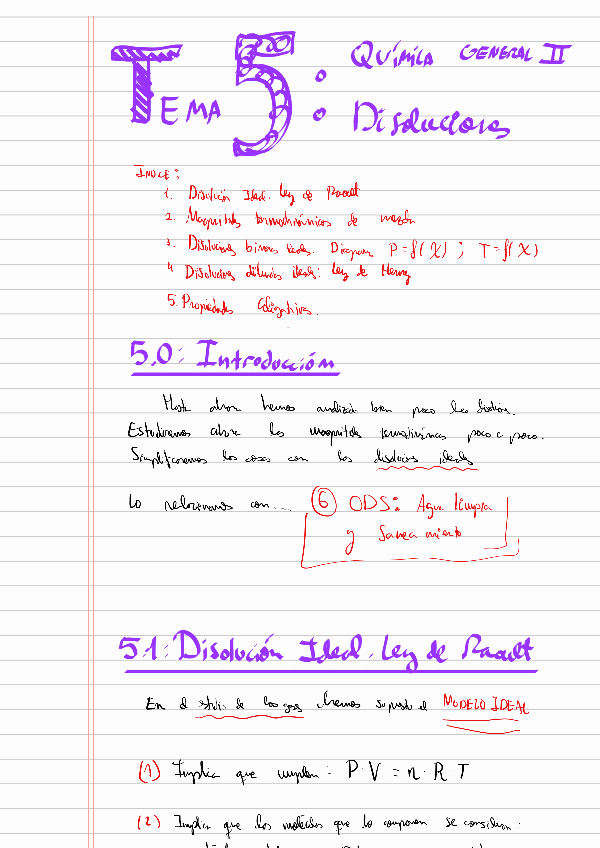 TEMA 5: QUÍMICA GENERAL II
Disoluciones
ÍNDICE:
1. Disolución Ideal. Ley de Raoult
2. Magnitudes termodinámicas de mezcla
3. Disoluciones binarias ideales. Diagramas P=f(X) ; T=f(X)
4. Disoluciones diluidas ideales: Ley de Henry
5. Propiedades Coligativas.
5.0: Introducción
Hasta ahora hemos analizado bien poco las
Estudiaremos ahora las magnitudes termodinámicas poco a poco.
Simplificaremos las cosas con las disoluciones ideales
Lo relacionamos con...
6 ODS: Agua limpia
y Saneamiento
5.1: Disolución Ideal. Ley de Raoult
En el estudio de los gases hemos supuesto el MODELO IDEAL
(1) Implica que cumplen: P·V = n·R T
(2) Implica que las moléculas que lo componen se consideran: